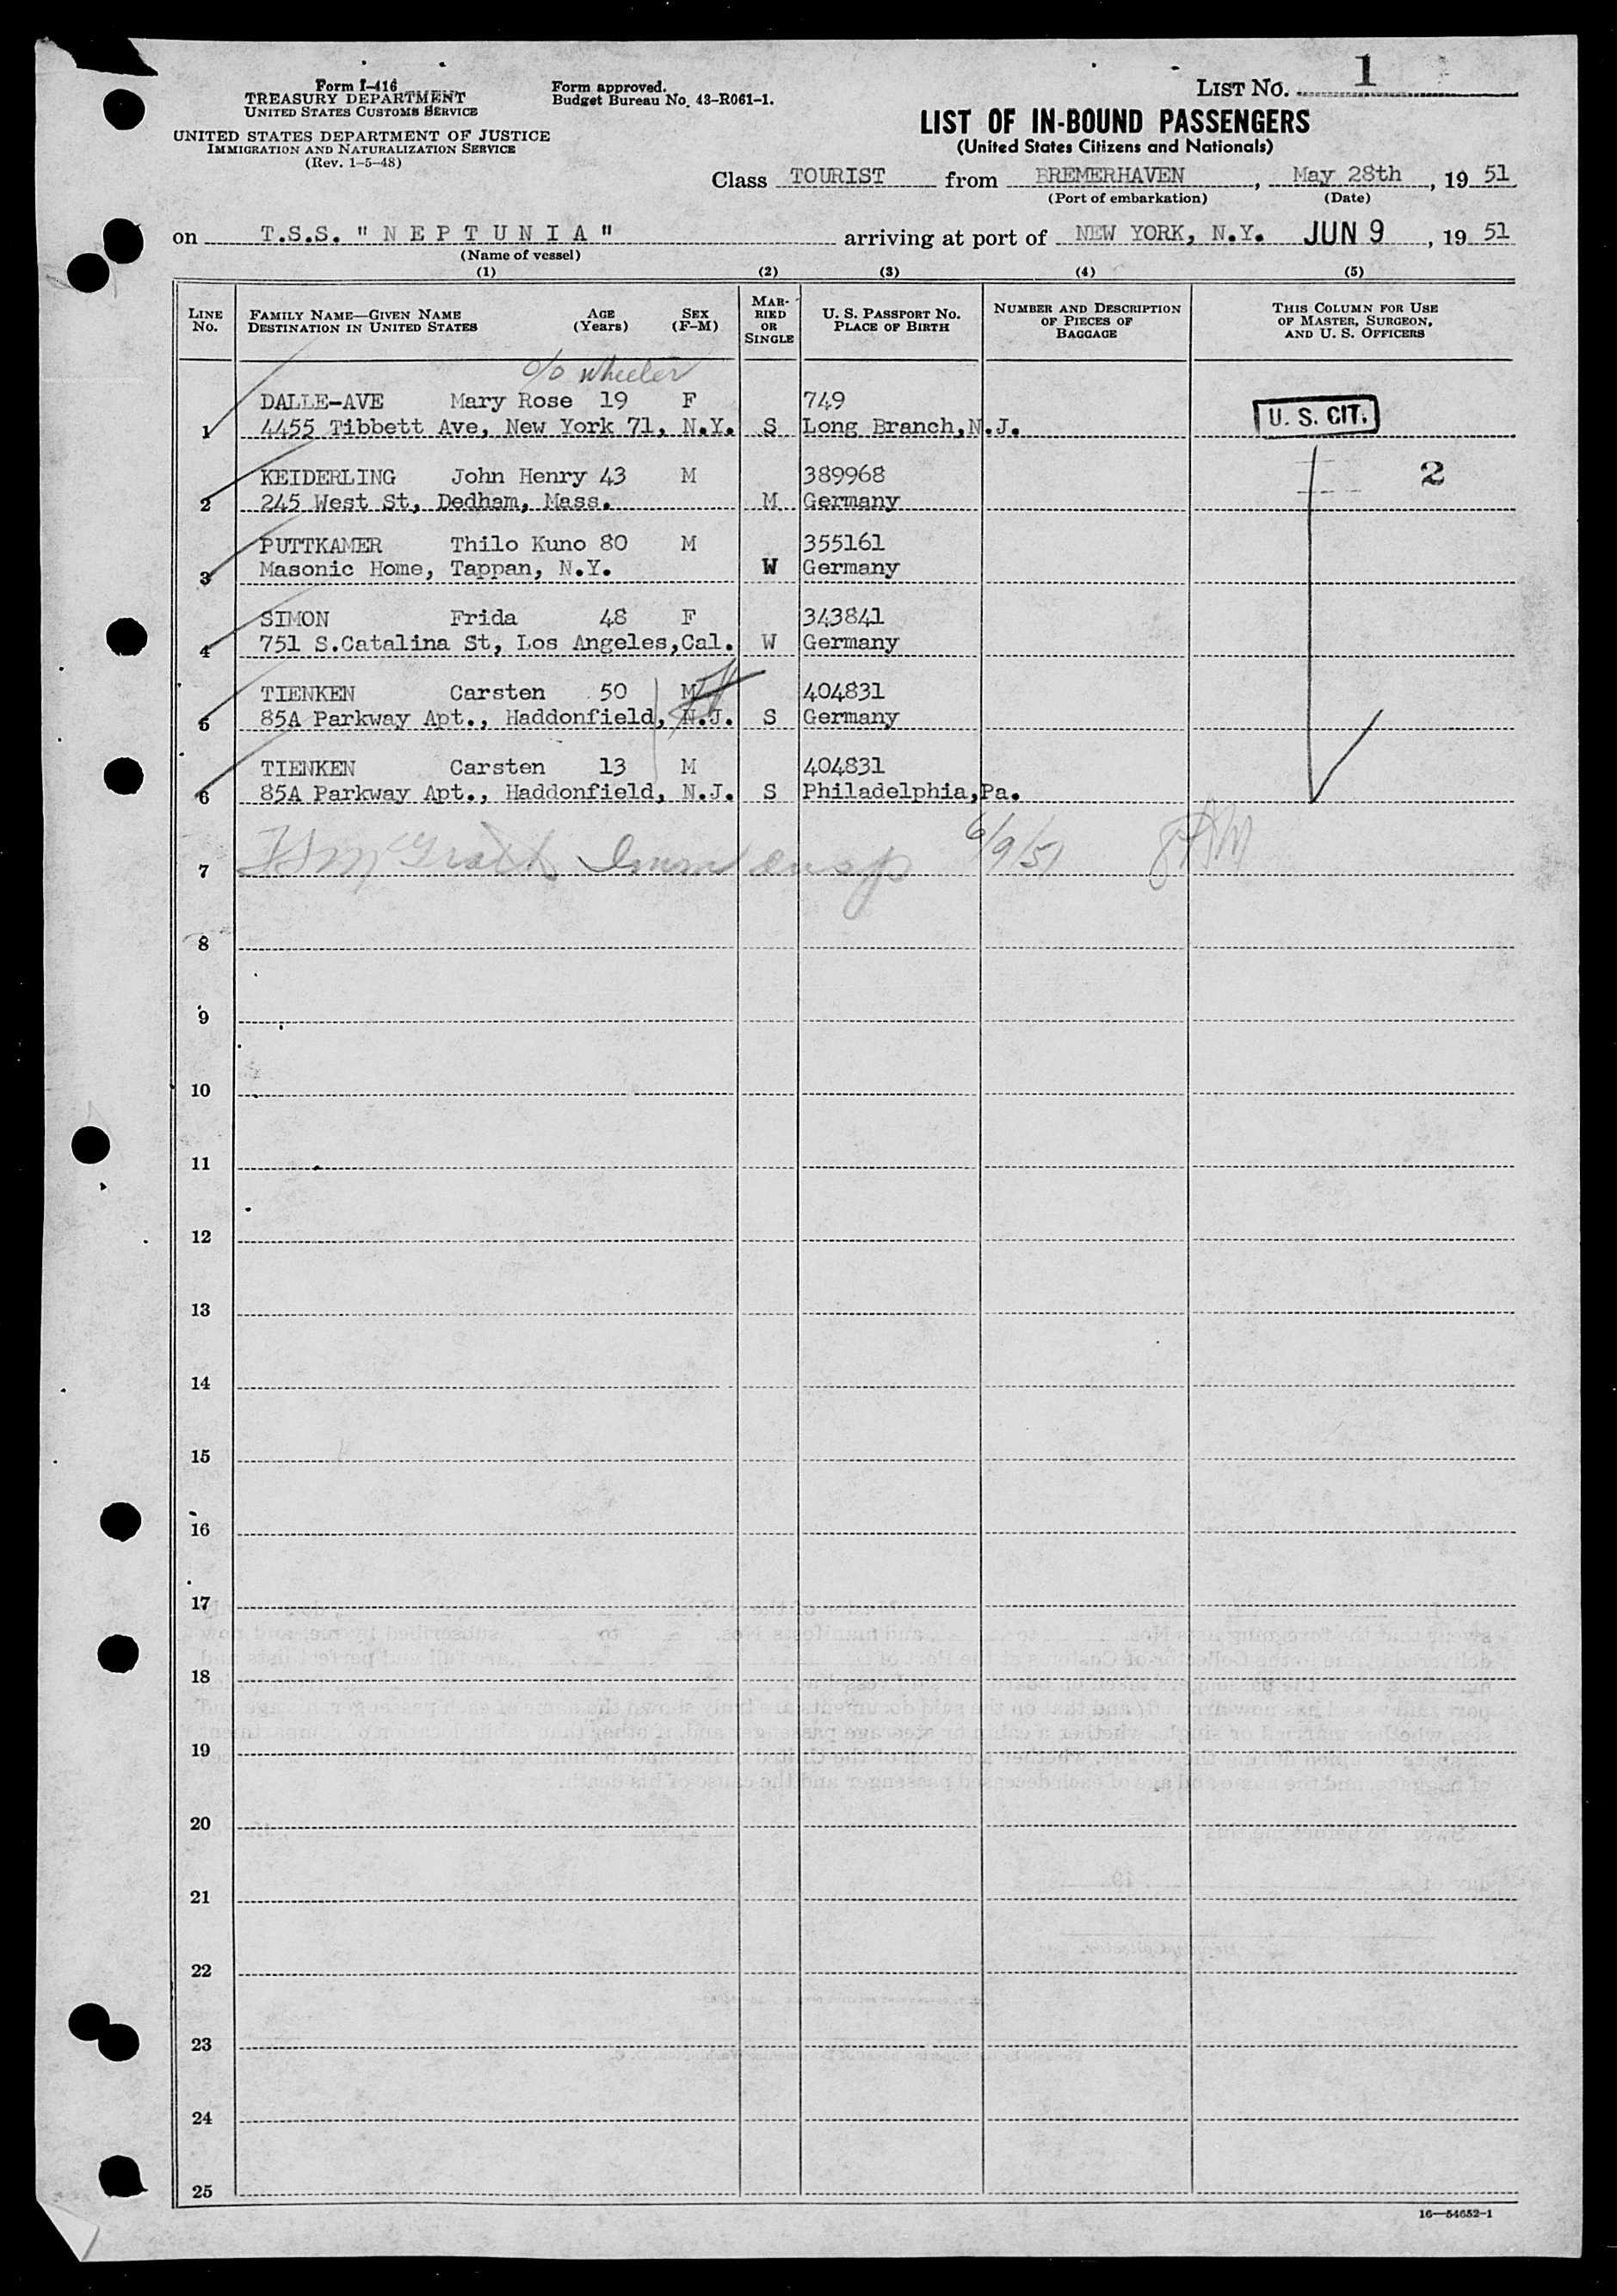 Form I-416
TREASURY DEPARTMENT
UNITED STATES CUSTOMS SERVICE
UNITED STATES DEPARTMENT OF JUSTICE
IMMIGRATION AND NATURALIZATION SERVICE
(Rev. 1-5-48)
Form approved.
Budget Bureau No. 43-R061-1.
LIST NO. 1
LIST OF IN-BOUND PASSENGERS
(United States Citizens and Nationals)
Class TOURIST from BREMERHAVEN, May 28th, 19 51
(Port of embarkation) (Date)
on T.S.S. "NEPTUNIA" arriving at port of NEW YORK, N.Y. JUN 9, 19 51
(Name of vessel)
(1) (2) (3) (4) (5)
LINE NO.
FAMILY NAME—GIVEN NAME AGE SEX
DESTINATION IN UNITED STATES (Years) (F-M)
MARRIED OR SINGLE
U. S. PASSPORT NO.
PLACE OF BIRTH
NUMBER AND DESCRIPTION
OF PIECES OF
BAGGAGE
THIS COLUMN FOR USE
OF MASTER, SURGEON,
AND U. S. OFFICERS
c/o Wheeler
DALLE-AVE Mary Rose 19 F 749
1 4455 Tibbett Ave, New York 71, N.Y. S Long Branch,N.J. U. S. CIT.
KEIDERLING John Henry 43 M 389968 2
2 245 West St, Dedham, Mass. M Germany
PUTTKAMER Thilo Kuno 80 M 355161
3 Masonic Home, Tappan, N.Y. W Germany
SIMON Frida 48 F 343841
4 751 S.Catalina St, Los Angeles,Cal. W Germany
TIENKEN Carsten 50 M 404831
5 85A Parkway Apt., Haddonfield, N.J. S Germany
TIENKEN Carsten 13 M 404831
6 85A Parkway Apt., Haddonfield, N.J. S Philadelphia,Pa.
7 McGrath Imm Insp 6/9/51
8
9
10
11
12
13
14
15
16
17
18
19
20
21
22
23
24
25
16—54652-1